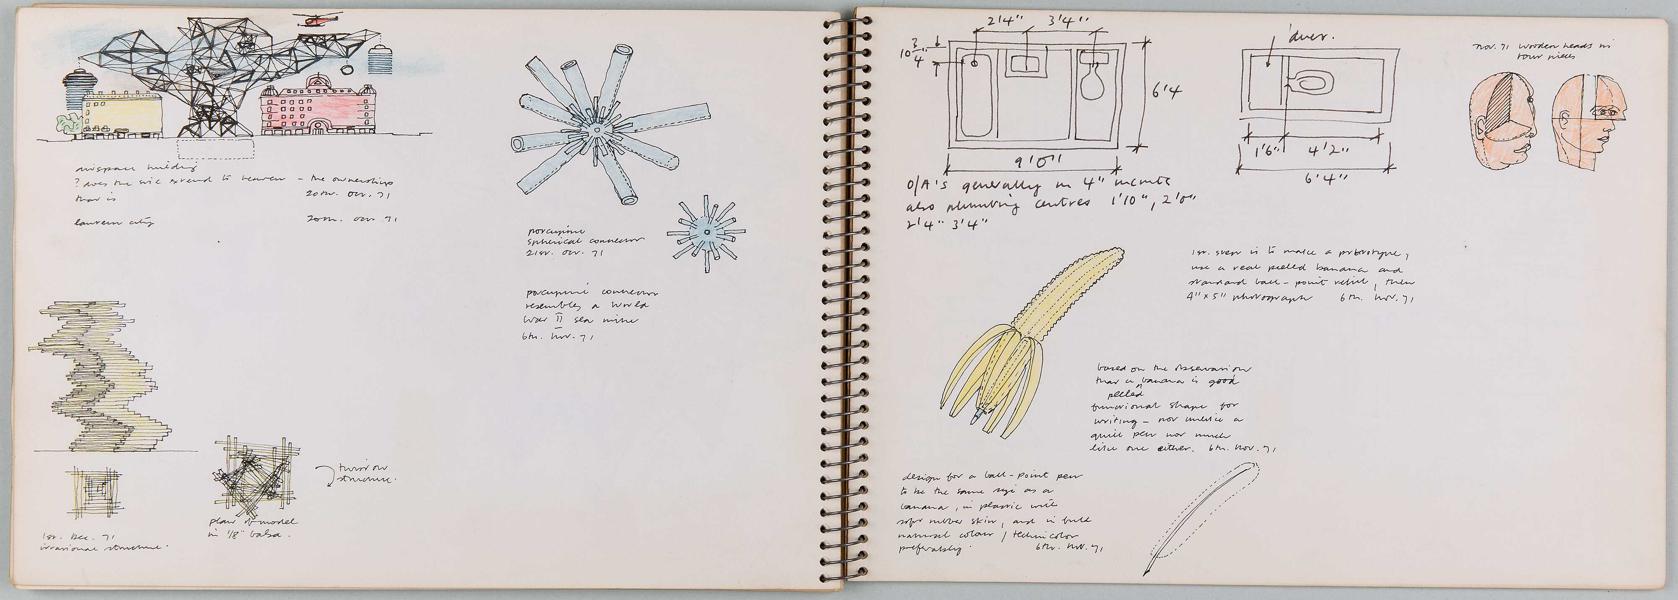 airspace building
? does the site extend to heaven - the ownership
that is 20th. Oct. 71
20th. Oct. 71
porcupine
spherical connector
21st. Oct. 71
porcupine connector
resembles a World
War II sea mine
6th. Nov. 71
twist on
structure.
plan of model
in 1/8" balsa.
1st. Dec. 71
irrational structure.
2'4" 3'4"
10 3/4"
6'4
9'0"
O/A's generally in 4" incmts
also plumbing centres 1'10", 2'0"
2'4" 3'4"
duct.
1'6" 4'2"
6'4"
Nov. 71 wooden heads in
four pieces
1st. step is to make a prototype,
use a real peeled banana and
standard ball-point refill, then
4"x5" photograph 6th. Nov. 71
based on the observation
that a peeled banana is good
functional shape for
writing - not unlike a
quill pen nor much
like one either. 6th. Nov. 71
design for a ball-point pen
to be the same size as a
banana, in plastic with
soft rubber skin, and in full
natural colour / technicolor
preferably. 6th. Nov. 71